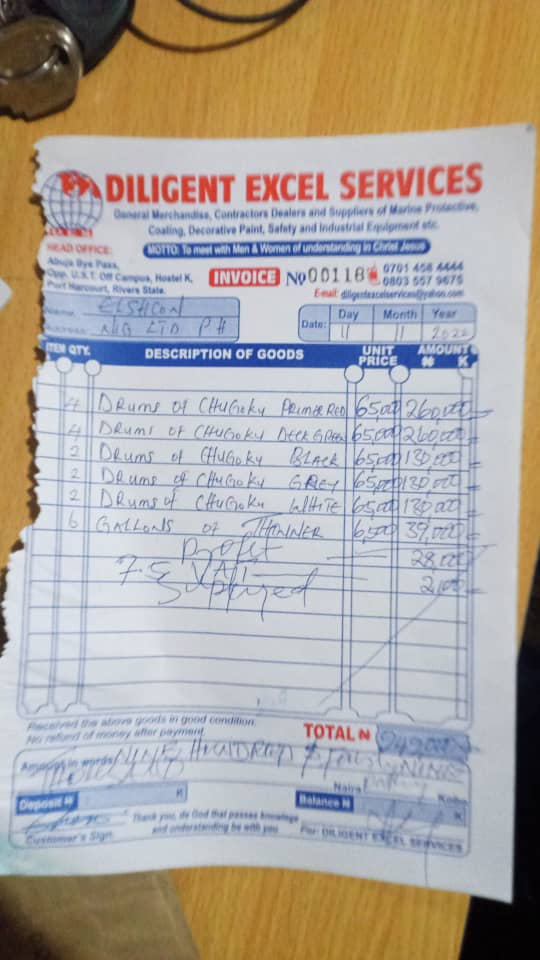 DILIGENT EXCEL SERVICES
General Merchandise, Contractors Dealers and Suppliers of Marine Protective,
Coating, Decorative Paint, Safety and Industrial Equipment etc.
HEAD OFFICE:
MOTTO: To meet with Men & Women of understanding in Christ Jesus
Abuja Bye Pass,
Opp. U.S.T. Off Campus, Hostel K,
Port Harcourt, Rivers State.
INVOICE No 00118
0701 458 4444
0803 557 9675
E-mail: diligentexcelservices@yahoo.com
Name: ELSHCON
Address: NIG LTD PH
Day Month Year
Date: 11 11 2022
ITEM QTY. DESCRIPTION OF GOODS UNIT PRICE AMOUNT
₦ K
4 DRUMS OF CHUGOKU PRIMER RED 65,000 260,000
4 DRUMS OF CHUGOKU DECK GREEN 65,000 260,000
2 DRUMS OF CHUGOKU BLACK 65,000 130,000
2 DRUMS OF CHUGOKU GREY 65,000 130,000
2 DRUMS OF CHUGOKU WHITE 65,000 130,000
6 GALLONS OF THINNER 6,500 39,000
Profit 28,000
7.5 VAT 2,100
Supplyed
Received the above goods in good condition.
No refund of money after payment.
TOTAL ₦
Amount in words NINE HUNDRED & NINE
Naira Kobo
Deposit ₦ K
Balance ₦ K
Thank you, de God that passes knowlege
and understanding be with you
Customer's Sign.
For: DILIGENT EXCEL SERVICES